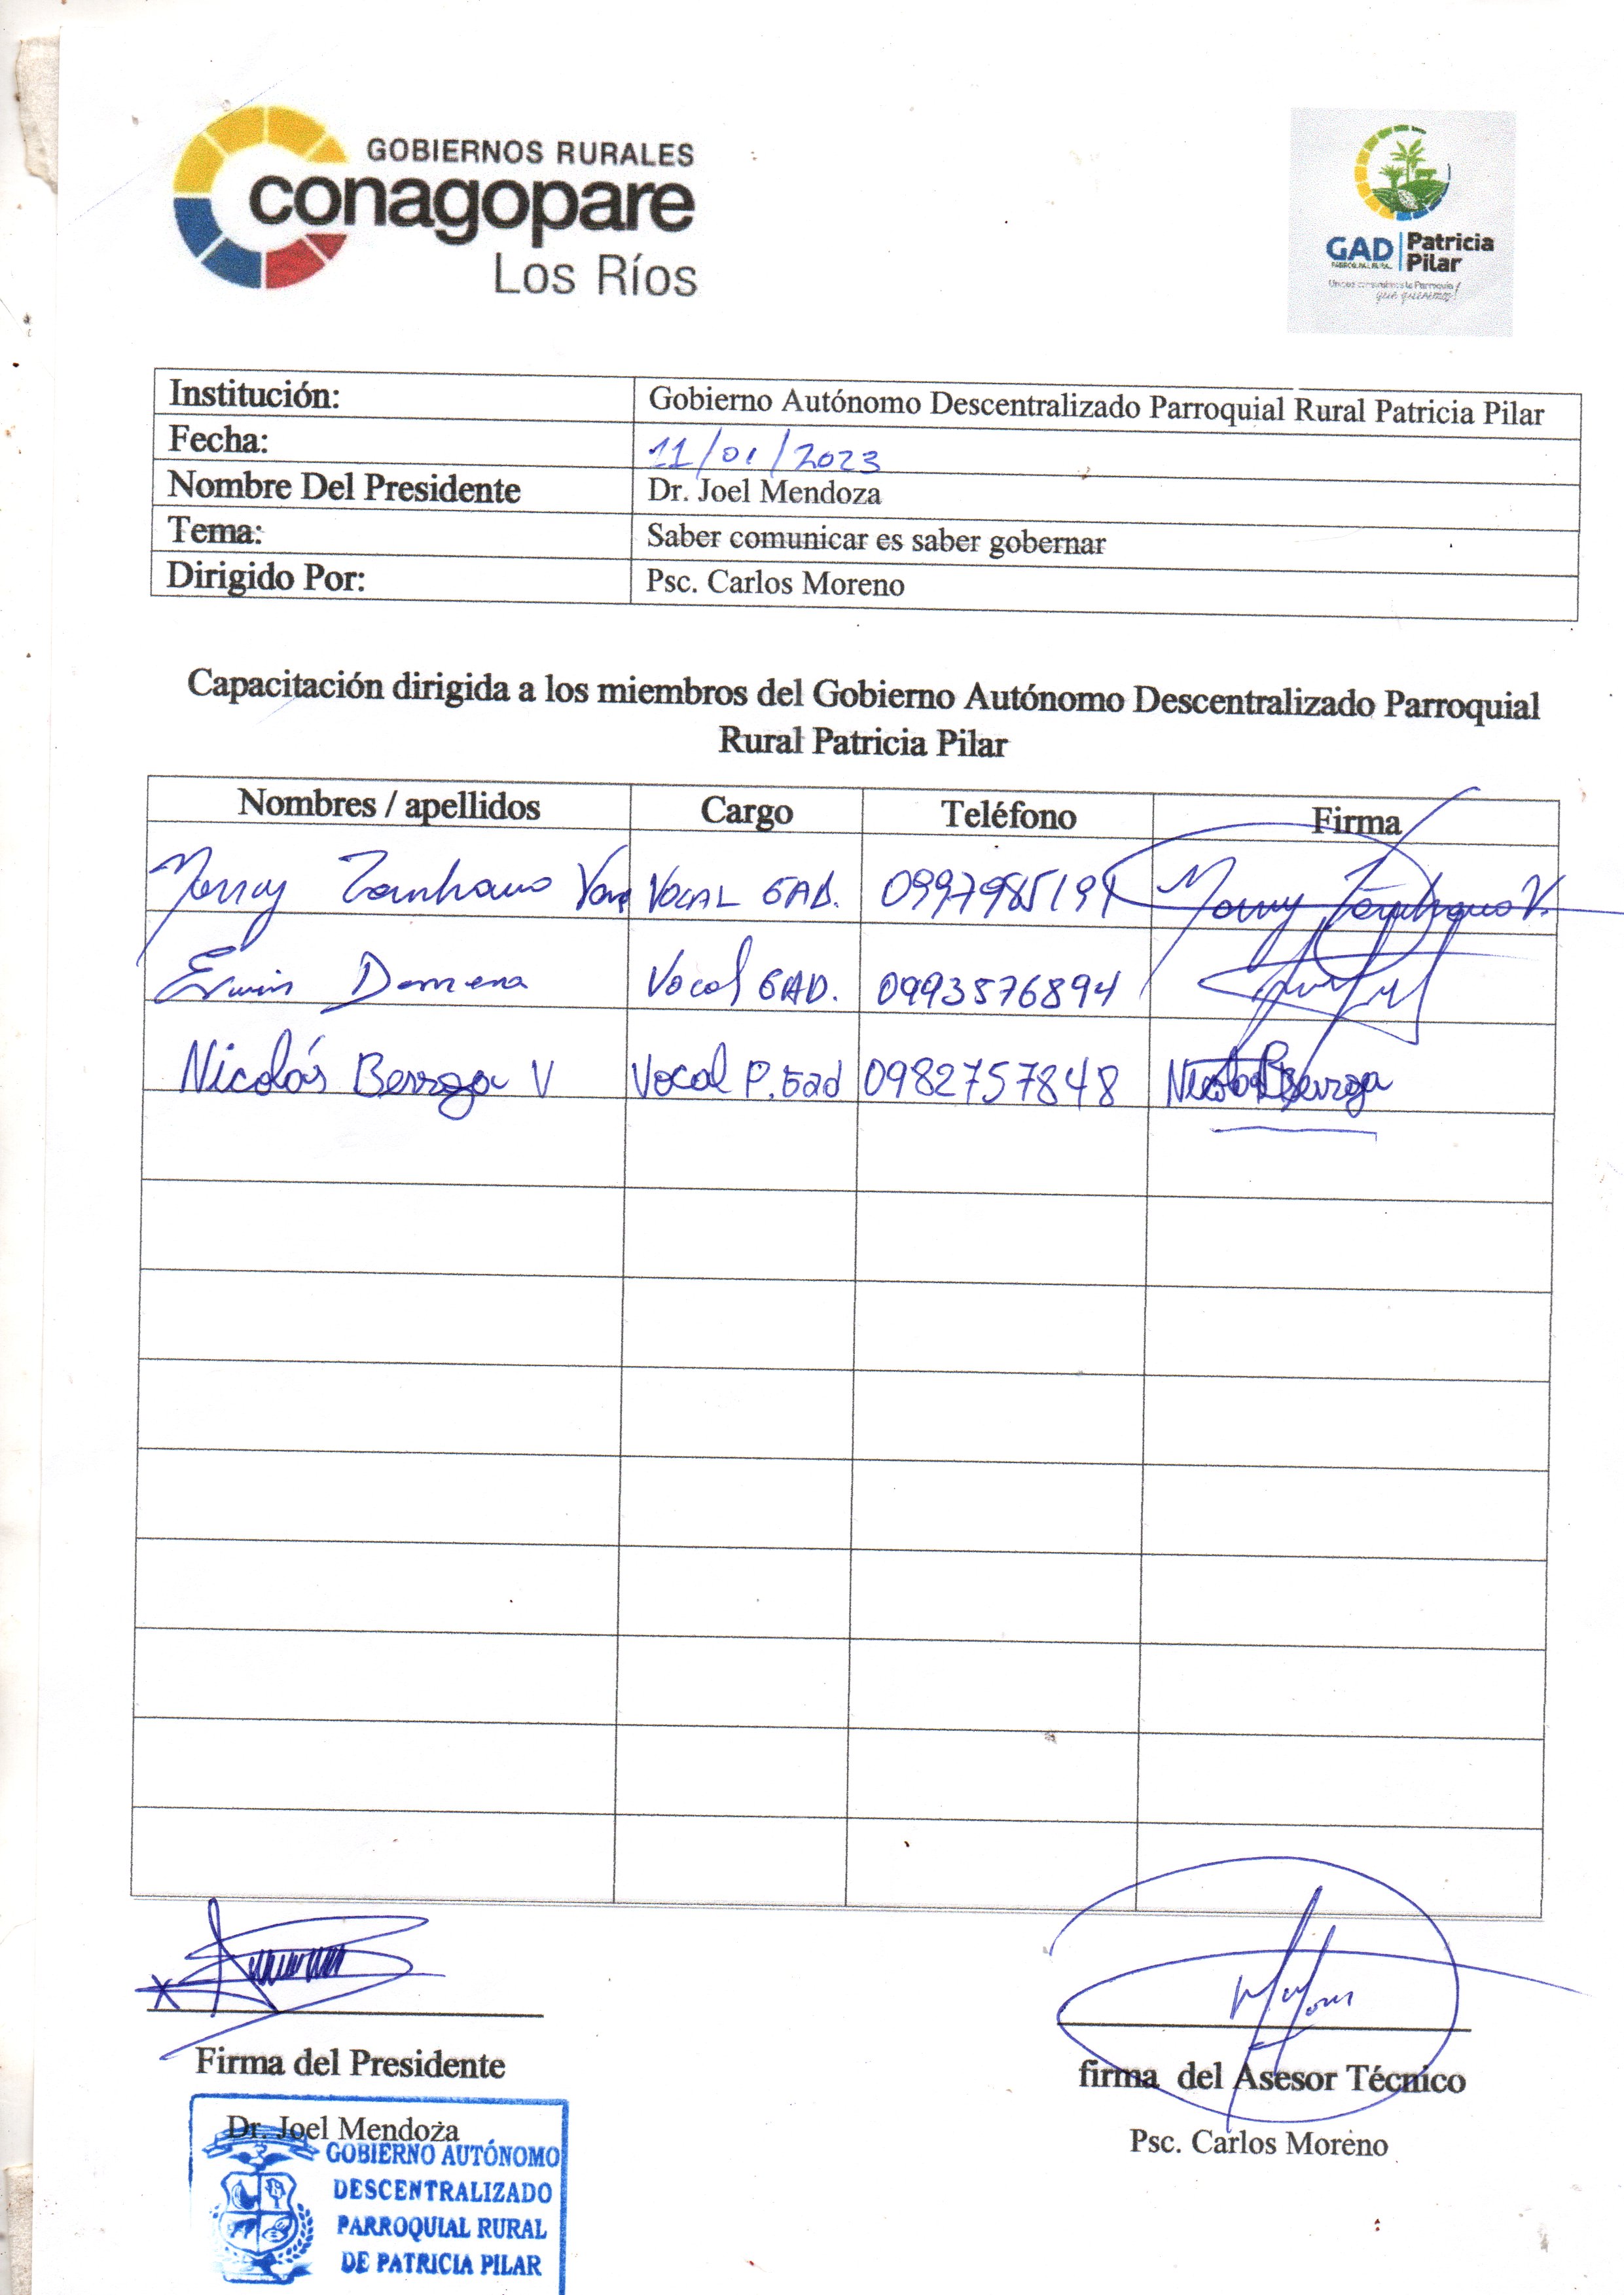 GOBIERNOS RURALES
conagopare
Los Ríos
GAD Patricia Pilar
Institución: Gobierno Autónomo Descentralizado Parroquial Rural Patricia Pilar
Fecha: 11/01/2023
Nombre Del Presidente Dr. Joel Mendoza
Tema: Saber comunicar es saber gobernar
Dirigido Por: Psc. Carlos Moreno
Capacitación dirigida a los miembros del Gobierno Autónomo Descentralizado Parroquial
Rural Patricia Pilar
Nombres / apellidos Cargo Teléfono Firma
Zambrano VOCAL GAD.
Vocal GAD. 0993576894
Nicolás V Vocal P. Gad 0982757848
Firma del Presidente
Dr. Joel Mendoza
GOBIERNO AUTÓNOMO
DESCENTRALIZADO
PARROQUIAL RURAL
DE PATRICIA PILAR
firma del Asesor Técnico
Psc. Carlos Moreno